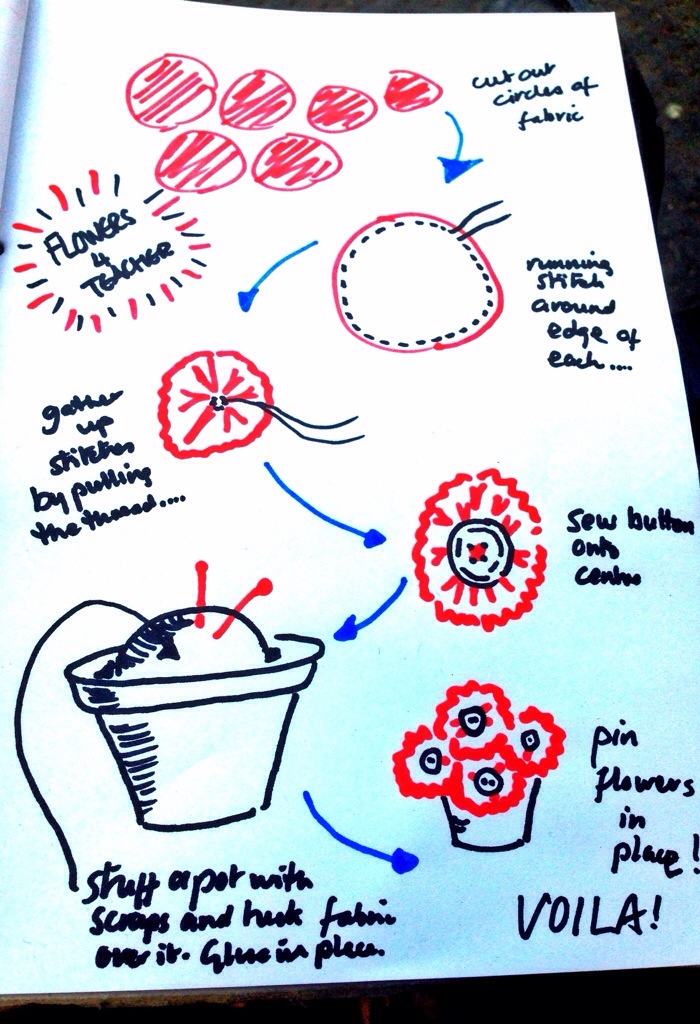 cut out
circles of
fabric
FLOWERS
4
TEACHER
running
stitch
around
edge of
each....
gather
up
stitches
by pulling
the thread....
sew button
onto
centre
stuff a pot with
scraps and tuck fabric
over it. Glue in place.
pin
flowers
in
place!
VOILA!